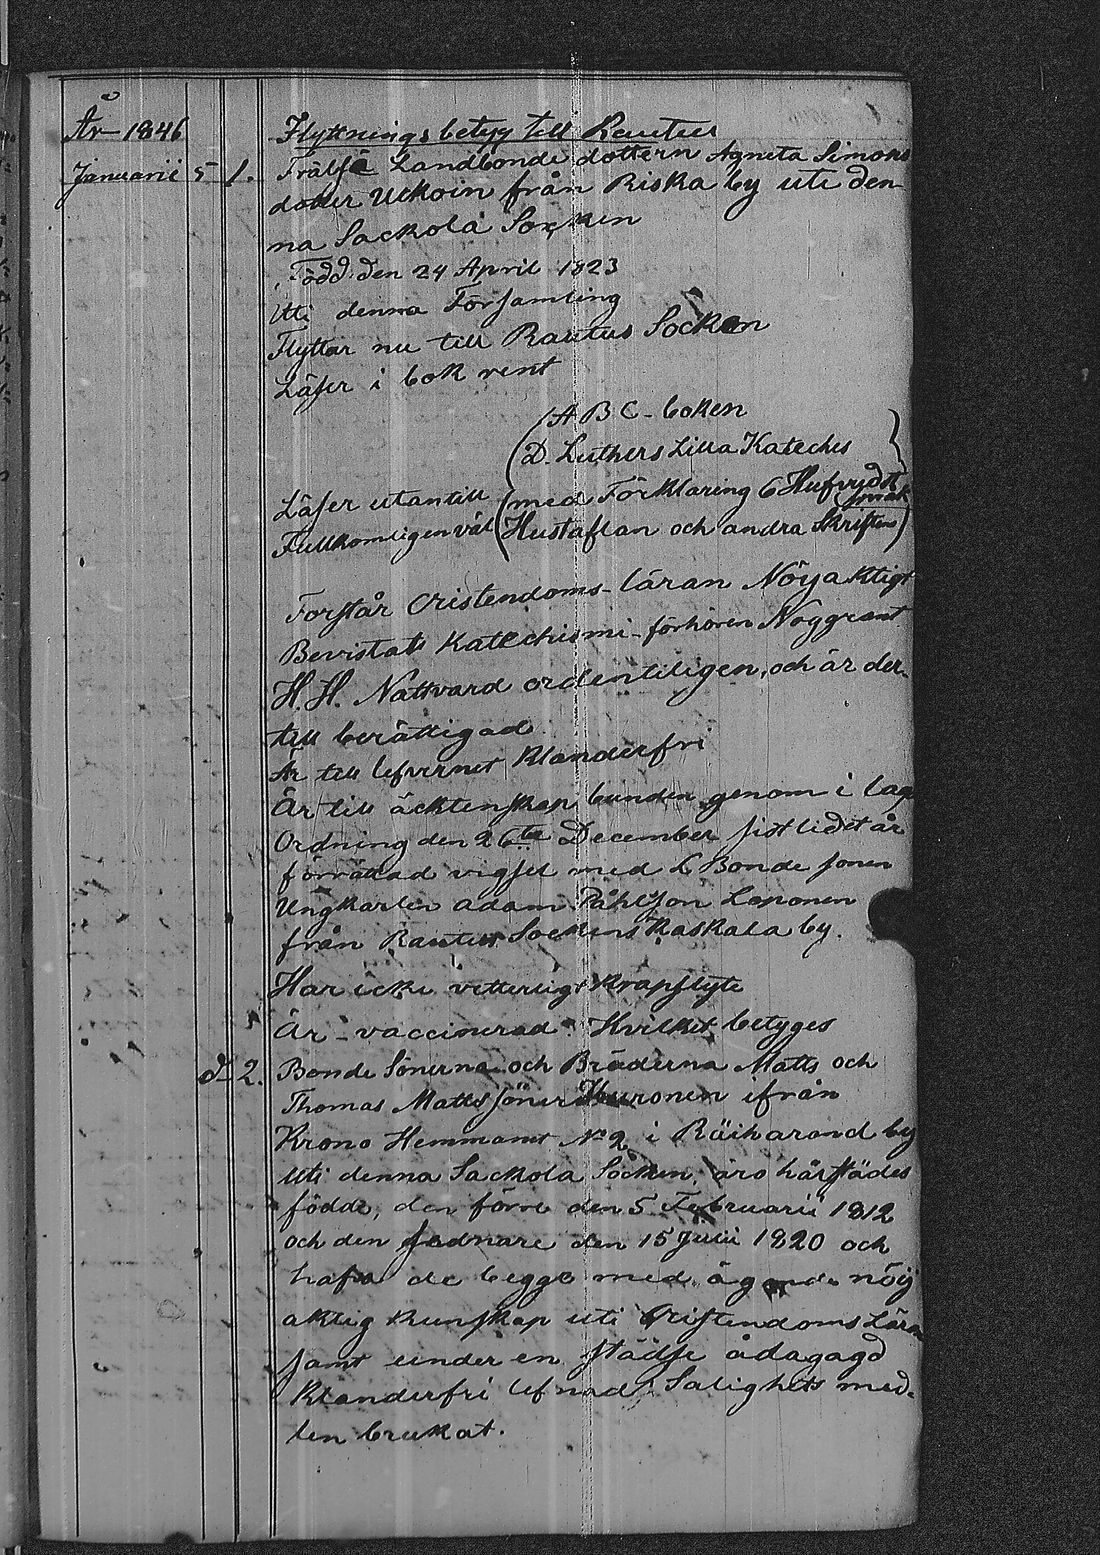 År 1846 Flyttnings betyg till Rautus
Januarii 5 1. Frälse Landbonde dottern Agneta Simons
dotter Ukkoin från Riska by uti den
na Sackola Socken
Född den 24 April 1823
Uti denna Församling
Flyttar nu till Rautus Socken
Läser i bok rent
ABC-boken
D. Luthers Lilla Kateches
Läser utantill med Förklaring 6 Hufvudst
Fullkomligen väl Hustaflan och andra Skriftens språk
Forstår Cristendoms-läran Nöyaktigt
Bevistat Katechismi-förhören Noggrant
H. H. Nattvard ordentligen, och är der-
till berättigad
Är till lefvernet Klanderfri
Är till äcktenskap bunden genom i laga
Ordning den 26te December sistledet år
förrättad vigsel med Bonde sonen
Ungkarlen Adam Påhlsson Loponen
från Rautus Sockens Raskala by.
Har icke vetterligt krapslyte
Är vaccinerad Hvilket betyges
d 2. Bonde Sönerna och Bröderna Matts och
Thomas Matts söner Huronen ifrån
Krono Hemmanet No 2 i Räiharand by
Uti denna Sackola Socken, äro härstädes
födde, den förre den 5 Februarii 1812
och den sednare den 15 Julii 1820 och
hafva de begge med ägande nöij
aktig kunskap uti Cristendoms Läran
samt under en städse ådagagd
Klanderfri lefnad Salighets med-
len brukat.